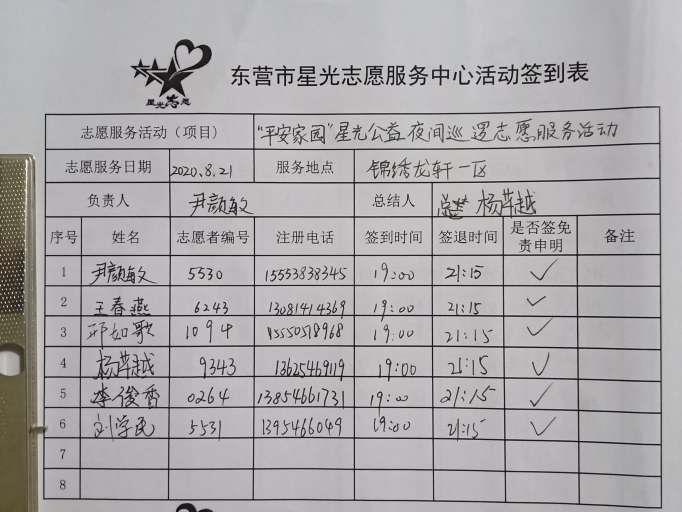 星光志愿
东营市星光志愿服务中心活动签到表
志愿服务活动（项目） "平安家园"星光公益夜间巡逻志愿服务活动
志愿服务日期 2020.8.21 服务地点 锦绣龙轩一区
负责人 尹颜敏 总结人 杨苹越
序号 姓名 志愿者编号 注册电话 签到时间 签退时间 是否签免责申明 备注
1 尹颜敏 5530 15553838345 19:00 21:15 ✓
2 王春燕 6243 13081414369 19:00 21:15 ✓
3 邢如歌 1094 15550518968 19:00 21:15 ✓
4 杨苹越 9343 13625469119 19:00 21:15 ✓
5 李俊香 0264 13854661731 19:00 21:15 ✓
6 刘学民 5531 1395466049 19:00 21:15 ✓
7
8